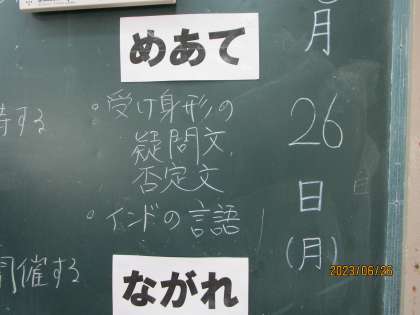 めあて
・受け身形の
疑問文,
否定文
・インドの言語
ながれ
月
26
日
(月)
待する
開催する
2023/06/26